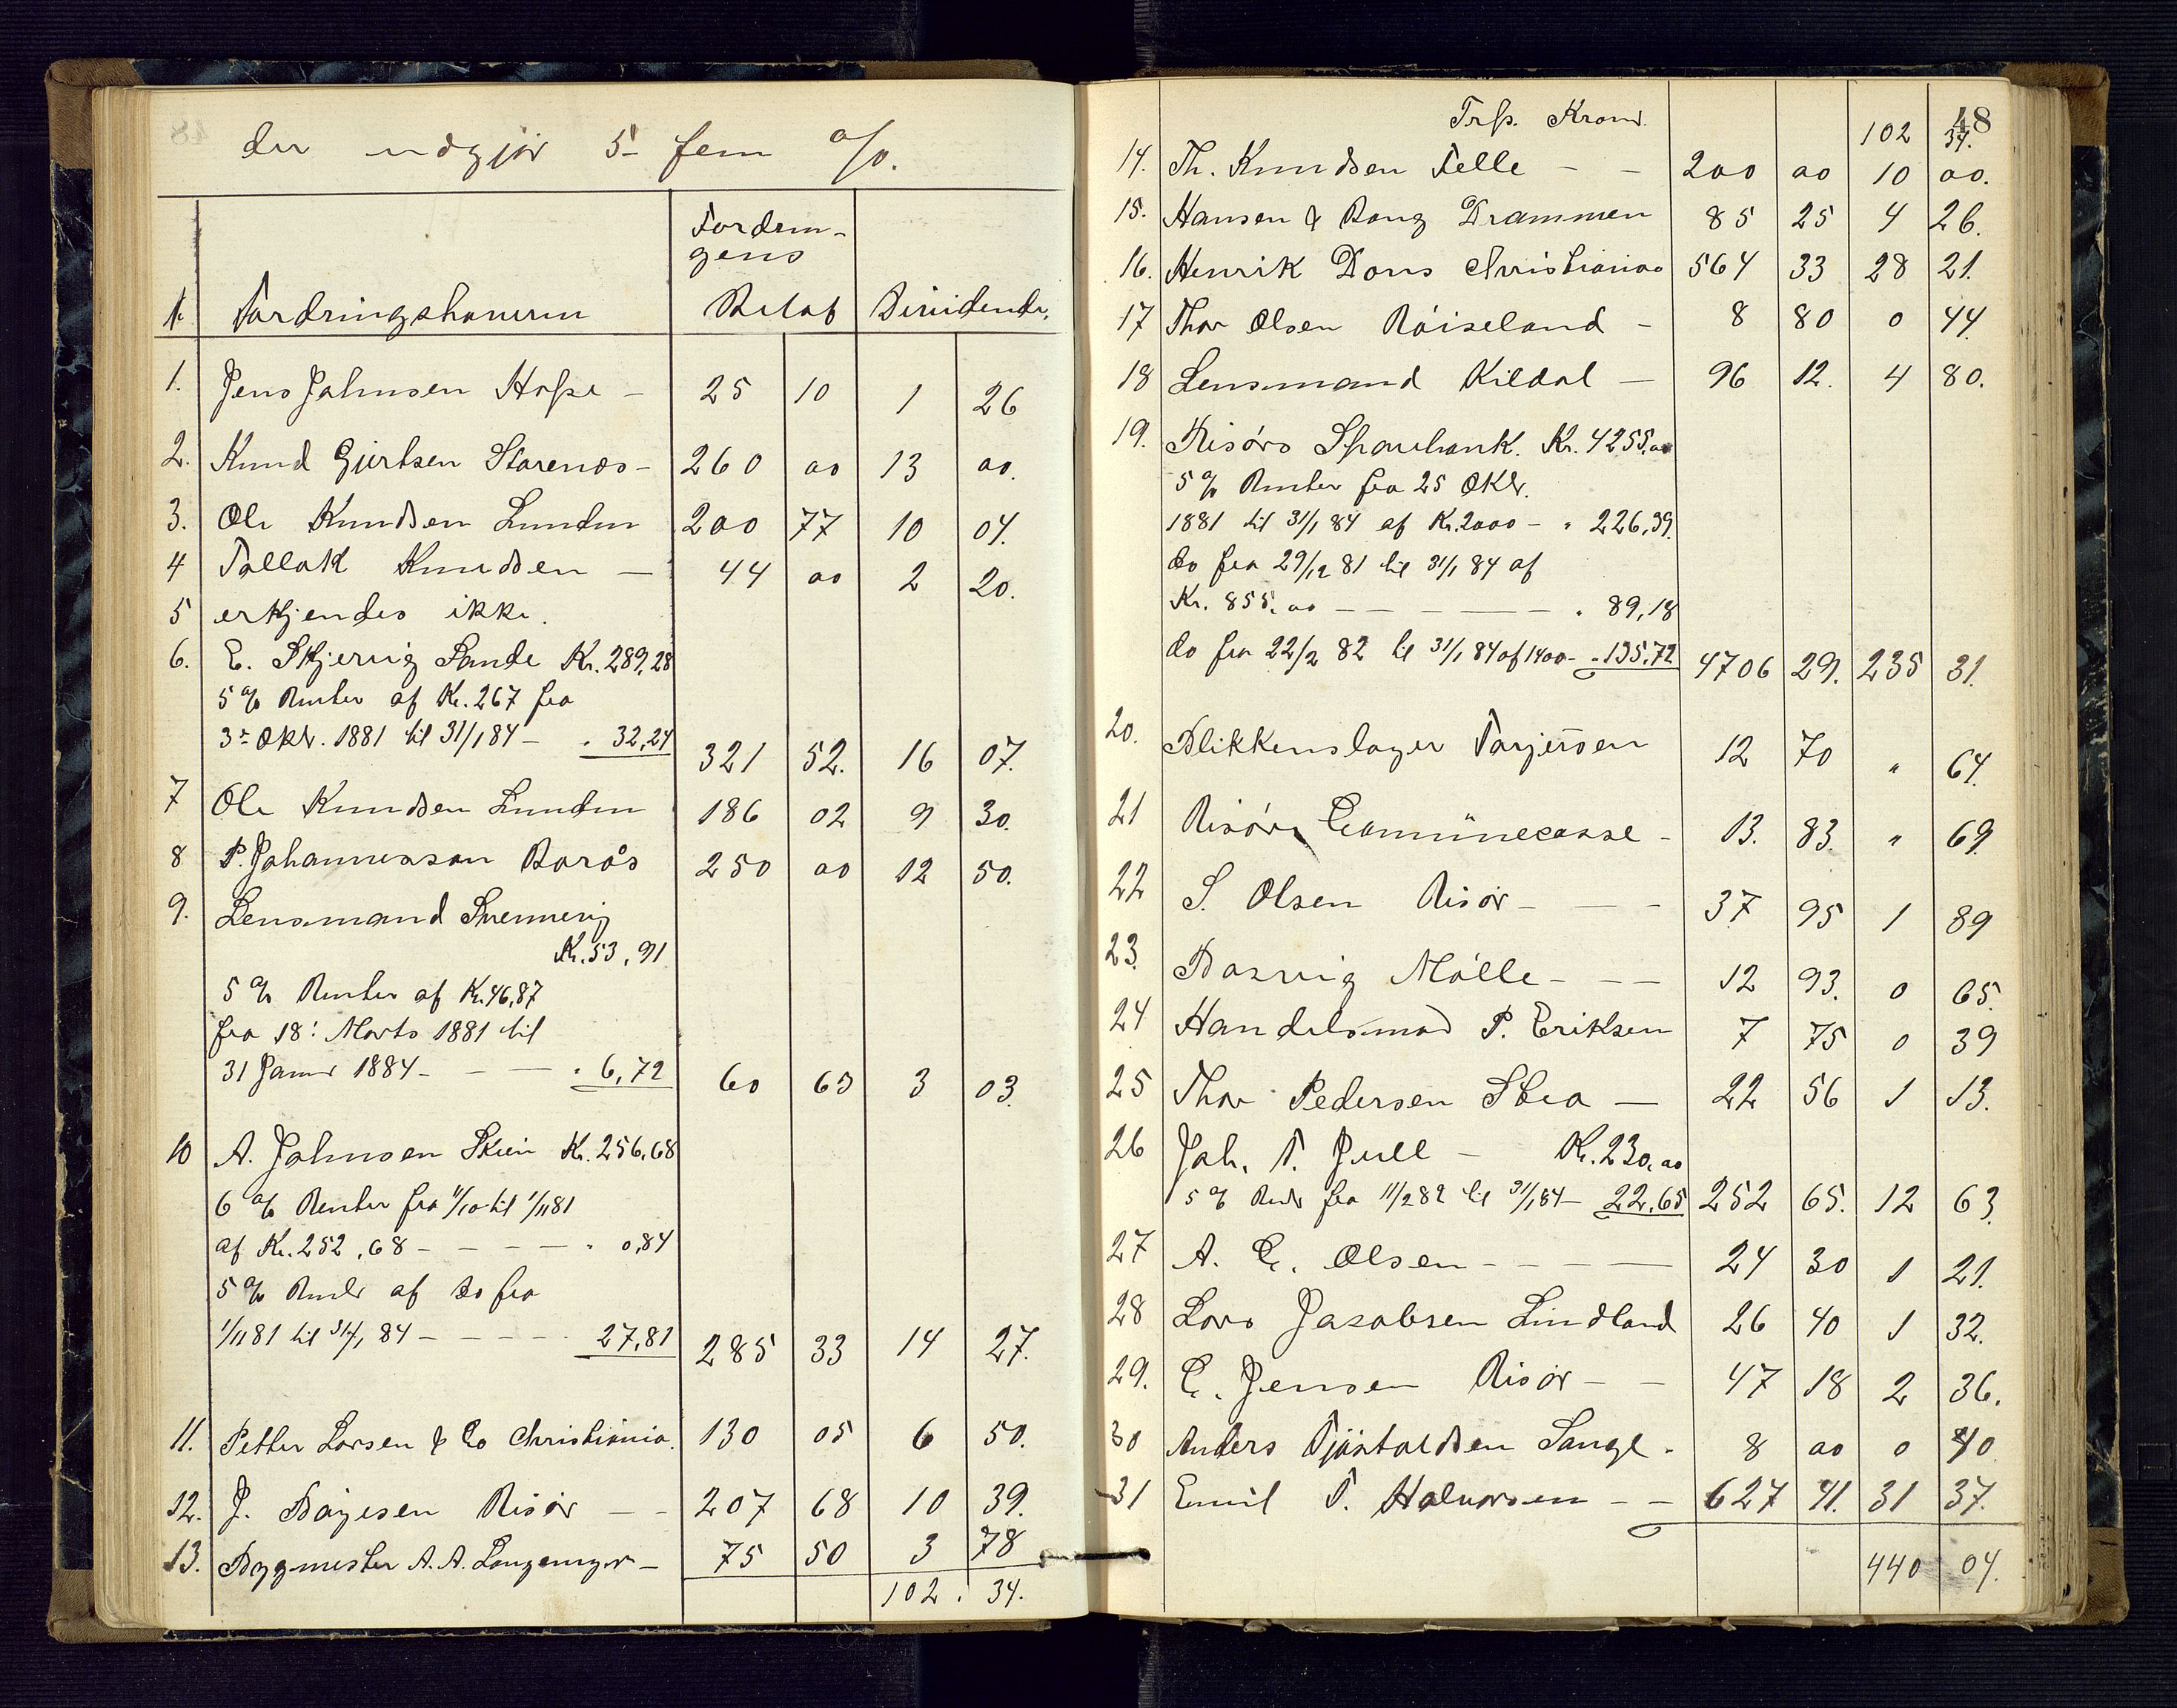 der udgjør 5 fem %.
Fordrin-
gens
№ Fordringshaveren Beløb Dividende.
1. Jens Johnsen Hope – 25 10 1 26
2. Knud Gjertsen Starenæs – 260 00 13 00.
3. Ole Knudsen Lunden 200 77 10 04.
4 Tallak Knudsen – 44 00 2 20.
5 erkjendes ikke.
6. E. Skjervig Sande Kr. 289,28
5 % Renter af Kr. 267 fra
3die Oktr. 1881 til 31/1 84 – " 32,24 321 52. 16 07.
7 Ole Knudsen Lunden 186 02 9 30.
8 P. Johannessen Boraas 250 00 12 50.
9. Lensmand Svennevig
Kr. 53,91
5 % Renter af Kr. 46,87
fra 18: Marts 1881 til
31 Januar 1884 – – – " 6,72 60 63 3 03.
10 A. Johnsen Skien Kr. 256,68
6 % Renter fra 11/10 til 1/11 81
af Kr. 252,68 – – – – " 0,84
5 % Renter af do fra
1/11 81 til 31/1 84 – – – – 27,81 285 33 14 27.
11. Petter Larsen & Co Christiania. 130 05 6 50.
12. J. Bøyesen Risør – – 207 68 10 39.
13. Bygmester A. A. Langemyr – 75 50 3 78
102. 34.
48
Trsp. Kroner 102 34.
14. Th. Knudsen Felle – – 200 00 10 00.
15. Hansen & Bang Drammen 85 25 4 26.
16. Henrik Dons Christiania 564 33 28 21.
17 Thor Olsen Røiseland – 8 80 0 44.
18 Lensmand Kildal – 96 12. 4 80.
19. Risørs Sparebank. Kr. 4255,00
5 % Renter fra 25 Oktr.
1881 til 31/1 84 af Kr. 2000 – " 226,39.
do fra 29/12 81 til 31/1 84 af
Kr. 855,00 – – – – – " 89,18
do fra 22/2 82 til 31/1 84 af 1400 – " 135,72 4706 29. 235 31.
20. Blikkenslager Tarjersen 12 70 " 64.
21 Risørs Communecasse – 13. 83. " 69.
22 S. Olsen Risør – – – 37 95 1 89
23. Bosvig Mølle – – – 12 93. 0 65.
24 Handelsmad P. Eriksen 7 75 0 39
25 Thor Pedersen Stea – 22 56 1 13.
26 Joh. T. Juell – Kr. 230,00
5 % Rentr fra 11/2 82 til 31/1 84 – 22,65 252 65. 12 63.
27 A. E. Olsen – – – – 24 30 1 21.
28 Lars Jacobsen Lindland 26 40 1 32.
29. E. Jensen Risør – – 47 18 2 36.
30 Anders Tjøstoldsen Sange – 8 00 0 40
31 Emil T. Halvorsen – – 627 41. 31 37.
440 04.